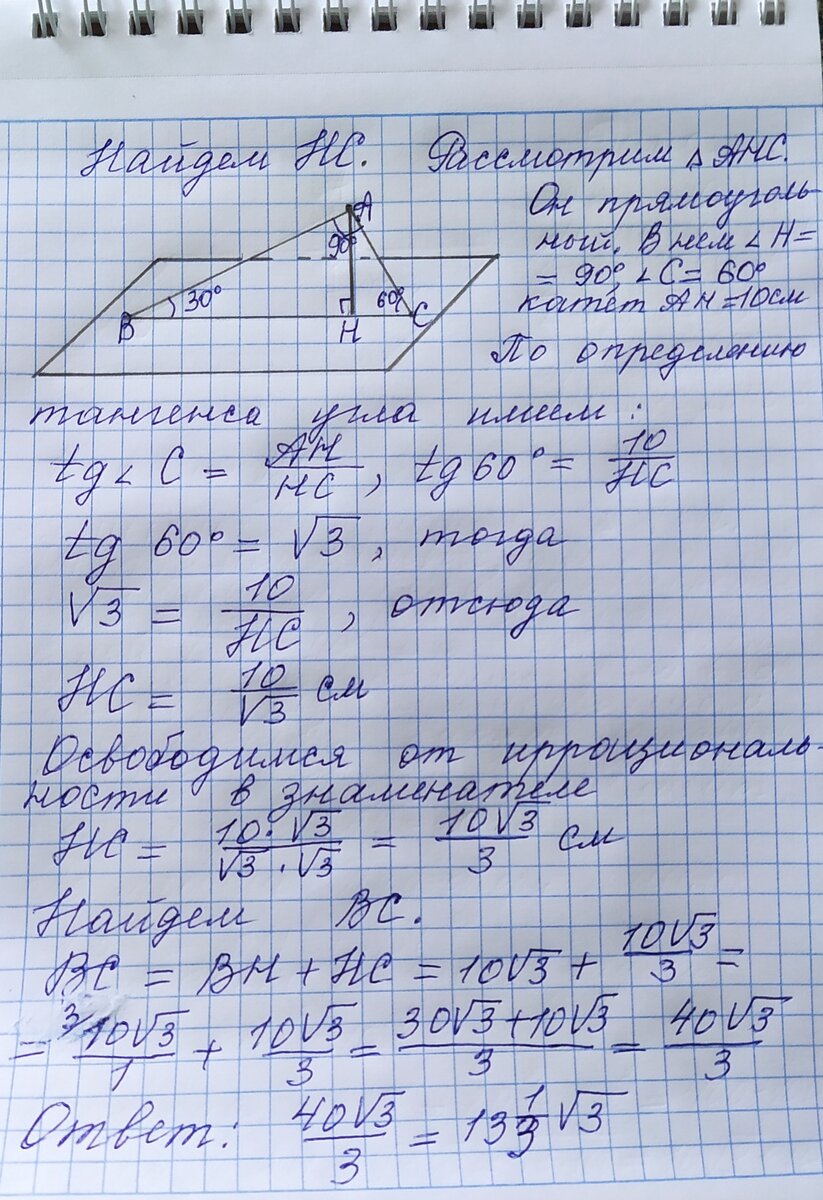 Найдем НС. Рассмотрим △ АНС.
Он прямоуголь-
ный. В нем ∠H =
= 90°, ∠C = 60°
катет АН = 10см
По определению
A
90°
30°
60°
B
H
C
тангенса угла имеем:
tg∠C = AH/HC, tg60° = 10/HC
tg 60° = √3, тогда
√3 = 10/HC, отсюда
HC = 10/√3 см
Освободимся от иррациональ-
ности в знаменателе
HC = 10·√3/√3·√3 = 10√3/3 см
Найдем BC.
BC = BH + HC = 10√3 + 10√3/3 =
= 3/ 10√3/1 + 10√3/3 = 30√3+10√3/3 = 40√3/3
Ответ: 40√3/3 = 13 1/3 √3